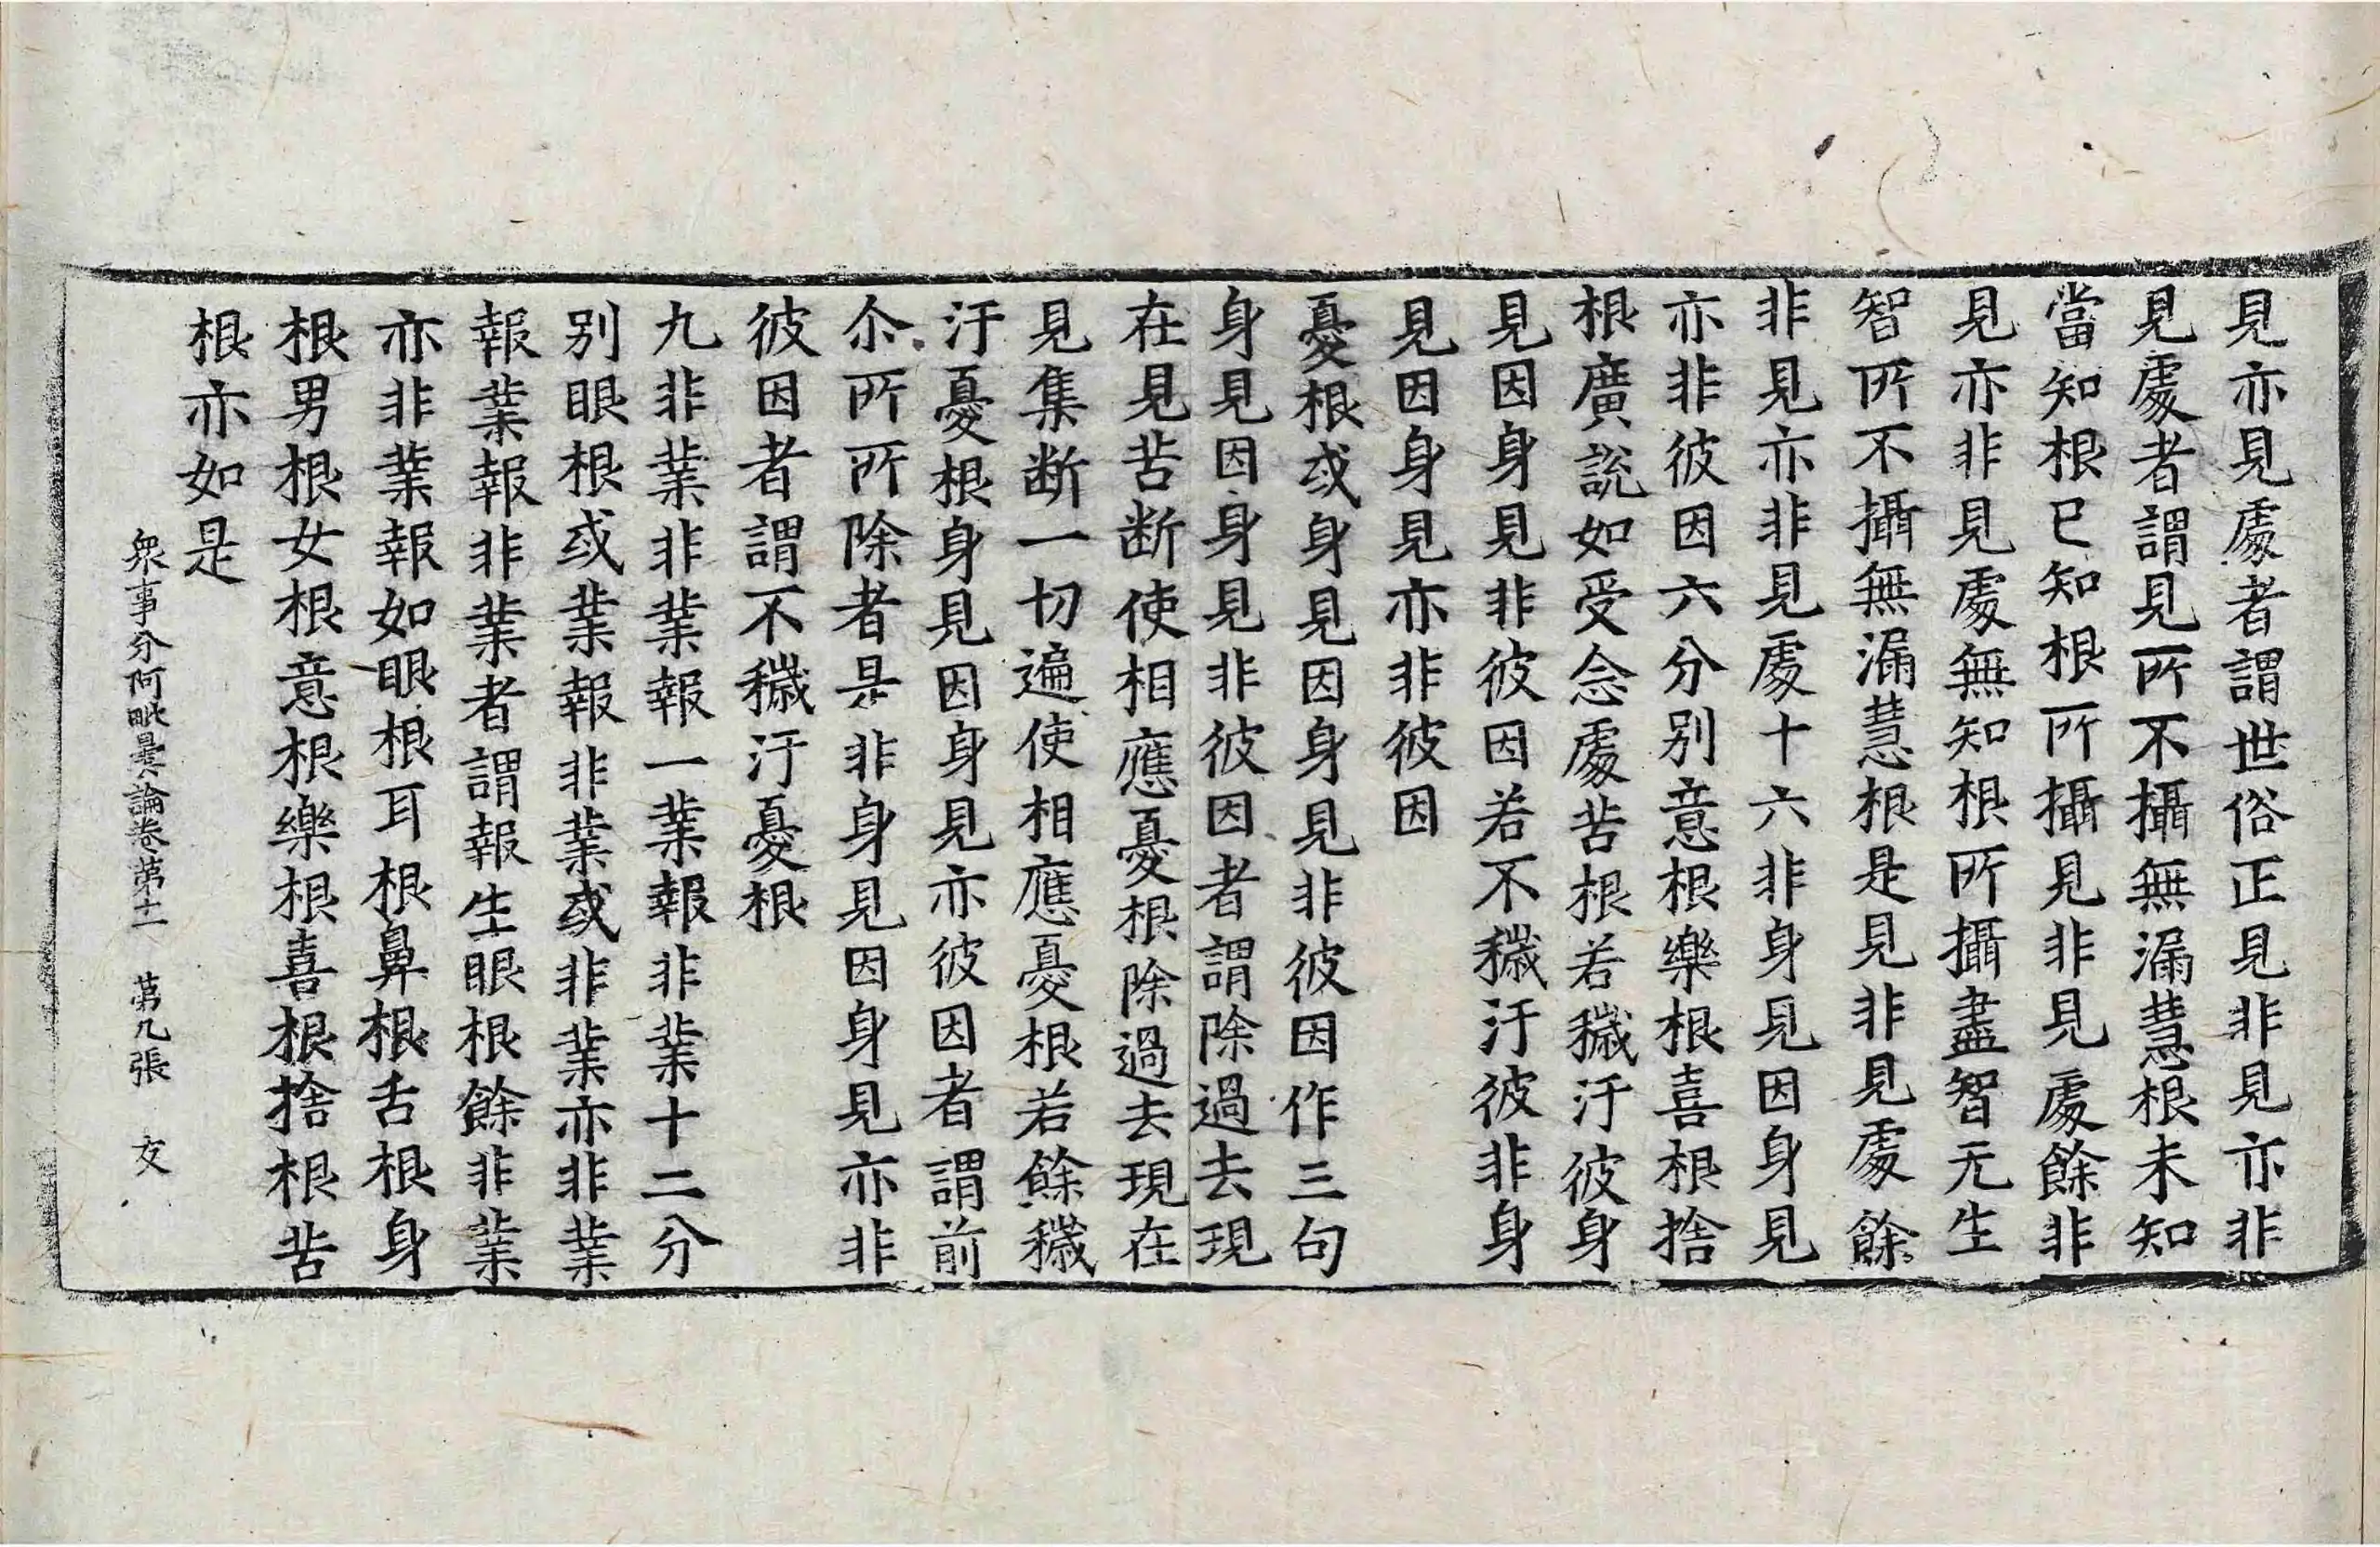 見亦見處者謂世俗正見非見亦非
見處者謂見所不攝無漏慧根未知
當知根已知根所攝見非見處餘非
見亦非見處無知根所攝盡智无生
智所不攝無漏慧根是見非見處餘
非見亦非見處十六非身見因身見
亦非彼因六分別意根樂根喜根捨
根廣說如受念處苦根若穢汙彼身
見因身見非彼因若不穢汙彼非身
見因身見亦非彼因
憂根或身見因身見非彼因作三句
身見因身見非彼因者謂除過去現
在見苦斷使相應憂根除過去現在
見集断一切遍使相應憂根若餘穢
汙憂根身見因身見亦彼因者謂前
尒所所除者是非身見因身見亦非
彼因者謂不穢汙憂根
九非業非業報一業報非業十二分
別眼根或業報非業或非業亦非業
報業報非業者謂報生眼根餘非業
亦非業報如眼根耳根鼻根舌根身
根男根女根意根樂根喜根捨根苦
根亦如是
衆事分阿毗曇論卷第十一 第九張 友